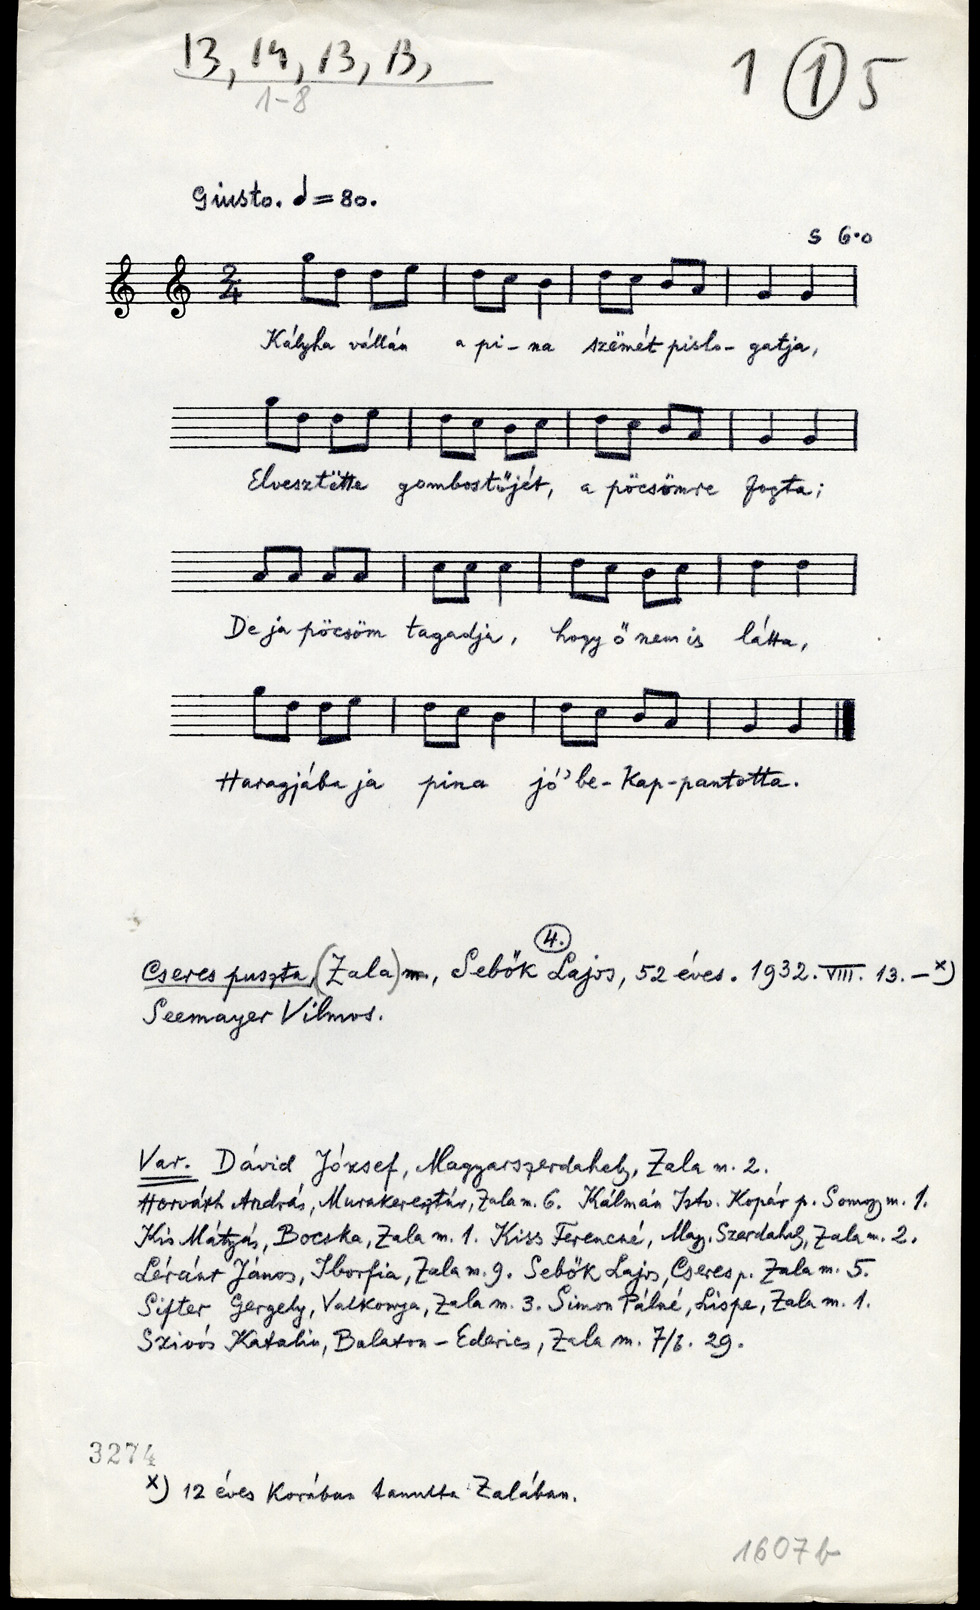 13, 14, 13, 13,
1-8
1 ① 5
Giusto. ♩=80.
s 6·o
2/4
Kályha vállán a pi-na szëmét pislo-gatja,
Elvesztëtte gombostűjét, a pöcsömre fogta;
De ja pöcsöm tagadja, hogy ő nem is látta,
Haragjába ja pina jó' be-kap-pantotta.
4.
Cseres puszta, (Zala) m., Sebők Lajos, 52 éves. 1932. VIII. 13. – x)
Seemayer Vilmos.
Var. Dávid József, Magyarszerdahely, Zala m. 2.
Horváth András, Murakeresztúr, Zala m. 6. Kálmán Istv. Kopár p. Somogy m. 1.
Kis Mátyás, Bocska, Zala m. 1. Kiss Ferencné, Mag. Szerdahely, Zala m. 2.
Léránt János, Iborfia, Zala m. 9. Sebők Lajos, Cseres p. Zala m. 5.
Sifter Gergely, Valkonya, Zala m. 3. Simon Pálné, Lispe, Zala m. 1.
Szivós Katalin, Balaton-Ederics, Zala m. 7/b. 29.
3274
x) 12 éves korában tanulta Zalában.
1607 b